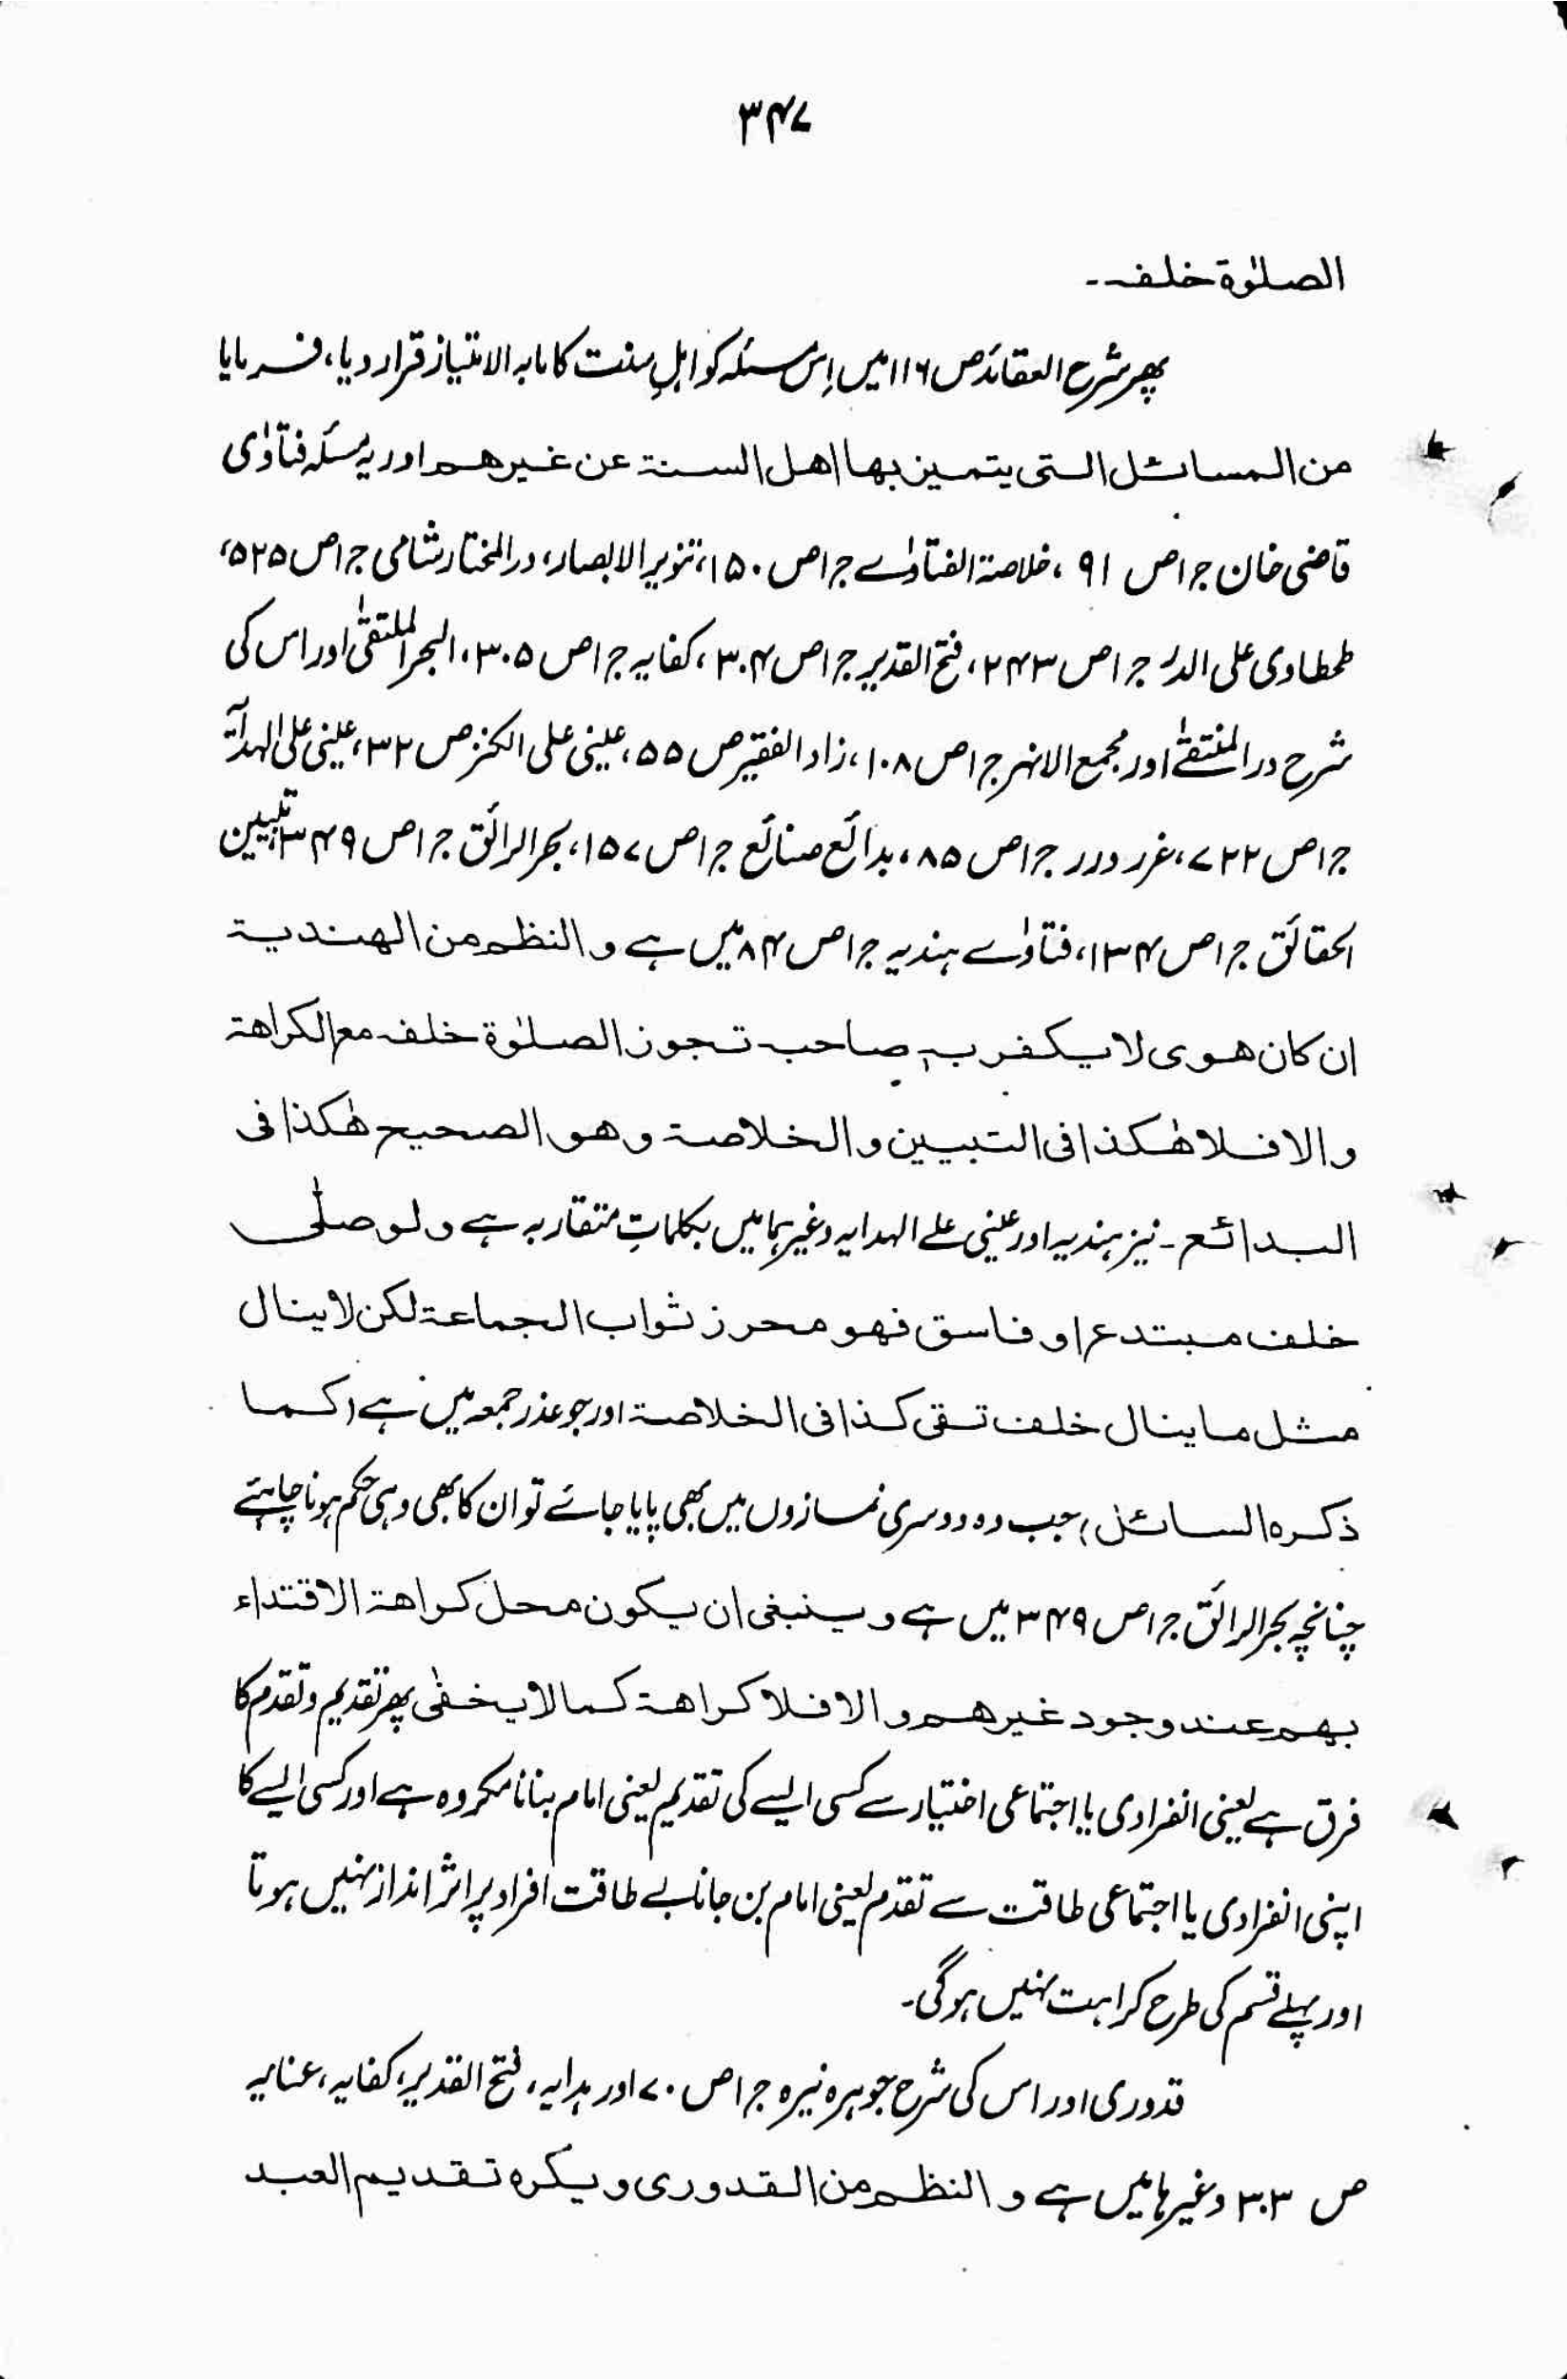 ۳۴۷
الصلوٰۃ خلفہ۔
پھر شرح العقائد ص ۱۱۶ میں اِس مسئلہ کو اہلِ سنت کا مابہ الامتیاز قرار دیا، فرمایا
من المسائل التی یتمیز بھا اھل السنۃ عن غیرھم اور یہ مسئلہ فتاوٰی
قاضی خان ج۱ ص ۹۱، خلاصۃ الفتاوٰے ج۱ ص ۱۵۰، تنویر الابصار، در المختار شامی ج۱ ص ۵۲۵،
طحطاوی علی الدر ج۱ ص ۲۴۳، فتح القدیر ج۱ ص ۳۰۴، کفایہ ج۱ ص ۳۰۵، البحر الملتقیٰ اور اس کی
شرح در المنتقےٰ اور مجمع الانہر ج۱ ص ۱۰۸، زاد الفقیر ص ۵۵، عینی علی الکنز ص ۳۲، عینی علی الہدآۃ
ج۱ ص ۷۲۲، غرر درر ج۱ ص ۸۵، بدائع صنائع ج۱ ص ۱۵۷، بحر الرائق ج۱ ص ۳۴۹، تبیین
الحقائق ج۱ ص ۱۳۴، فتاوٰے ہندیہ ج۱ ص ۸۴ میں ہے والنظم من الھندیۃ
ان کان ھوی لا یکفر بہ صاحبہ تجوز الصلوٰۃ خلفہ مع الکراھۃ
والا فلا ھٰکذا فی التبیین والخلاصۃ وھو الصحیح ھٰکذا فی
البدائع۔ نیز ہندیہ اور عینی علے الہدایہ وغیرہما میں بکلماتِ متقاربہ ہے ولو صلّٰی
خلف مبتدع او فاسق فھو محرز ثواب الجماعۃ لکن لا ینال
مثل ما ینال خلف تقی کذا فی الخلاصۃ اور جو عذر جمعہ میں ہے (کما
ذکرہ السائل) جب وہ دوسری نمازوں میں بھی پایا جائے تو ان کا بھی وہی حکم ہونا چاہئے
چنانچہ بحر الرائق ج۱ ص ۳۴۹ میں ہے وینبغی ان یکون محل کراھۃ الاقتداء
بھم عند وجود غیرھم والا فلا کراھۃ کما لا یخفٰی پھر تقدیم و تقدم کا
فرق ہے یعنی انفرادی یا اجتماعی اختیار سے کسی ایسے کی تقدیم یعنی امام بنانا مکروہ ہے اور کسی ایسے کا
اپنی انفرادی یا اجتماعی طاقت سے تقدم یعنی امام بن جانا بے طاقت افراد پر اثر انداز نہیں ہوتا
اور پہلے قسم کی طرح کراہت نہیں ہوگی۔
قدوری اور اس کی شرح جوہرہ نیرہ ج۱ ص ۷۰ اور ہدایہ، فتح القدیر، کفایہ، عنایہ
ص ۳۰۳ وغیرہا میں ہے والنظم من القدوری ویکرہ تقدیم العبد